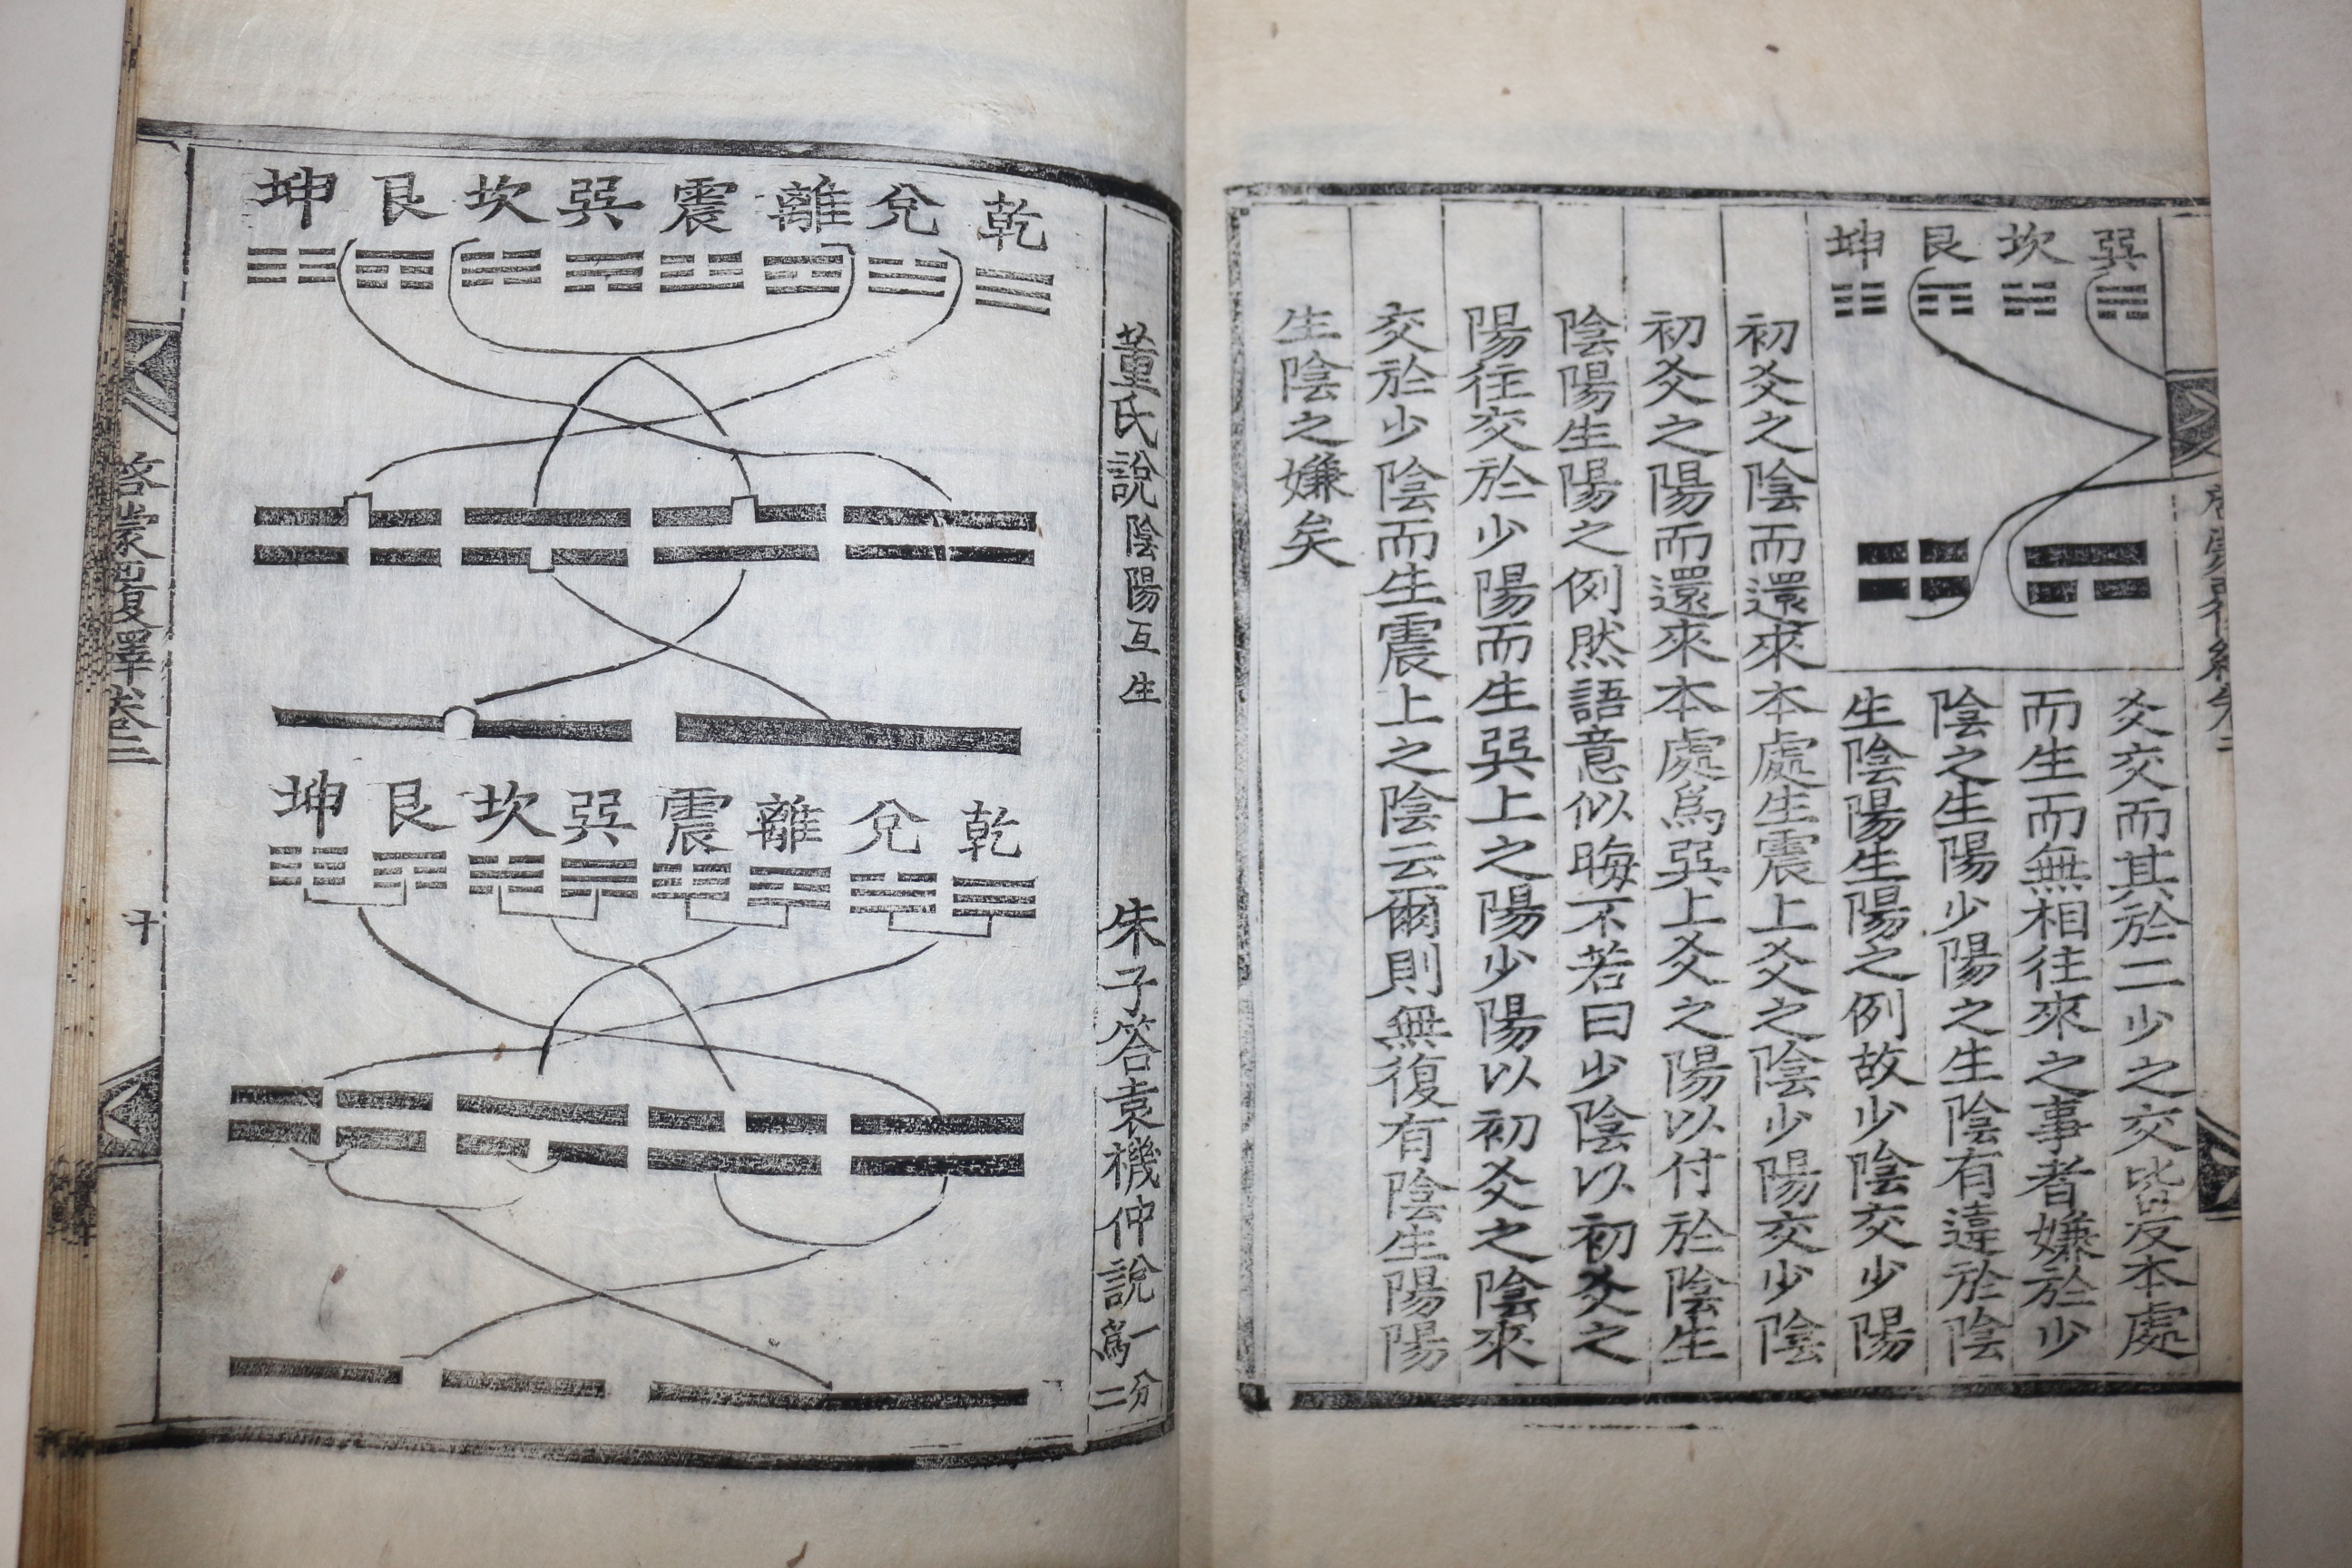 巽 坎 艮 坤
爻交而其於二少之交皆反本處
而生而無相往來之事者嫌於少
陰之生陽少陽之生陰有違於陰
生陰陽生陽之例故少陰交少陽
初爻之陰而還來本處生震上爻之陰少陽交少陰
初爻之陽而還來本處爲巽上爻之陽以付於陰生
陰陽生陽之例然語意似晦不若曰少陰以初爻之
陽往交於少陽而生巽上之陽少陽以初爻之陰來
交於少陰而生震上之陰云爾則無復有陰生陽陽
生陰之嫌矣
董氏說陰陽互生
乾 兌 離 震 巽 坎 艮 坤
朱子答袁機仲說一分爲二
乾 兌 離 震 巽 坎 艮 坤
啓蒙覆繹卷二
十